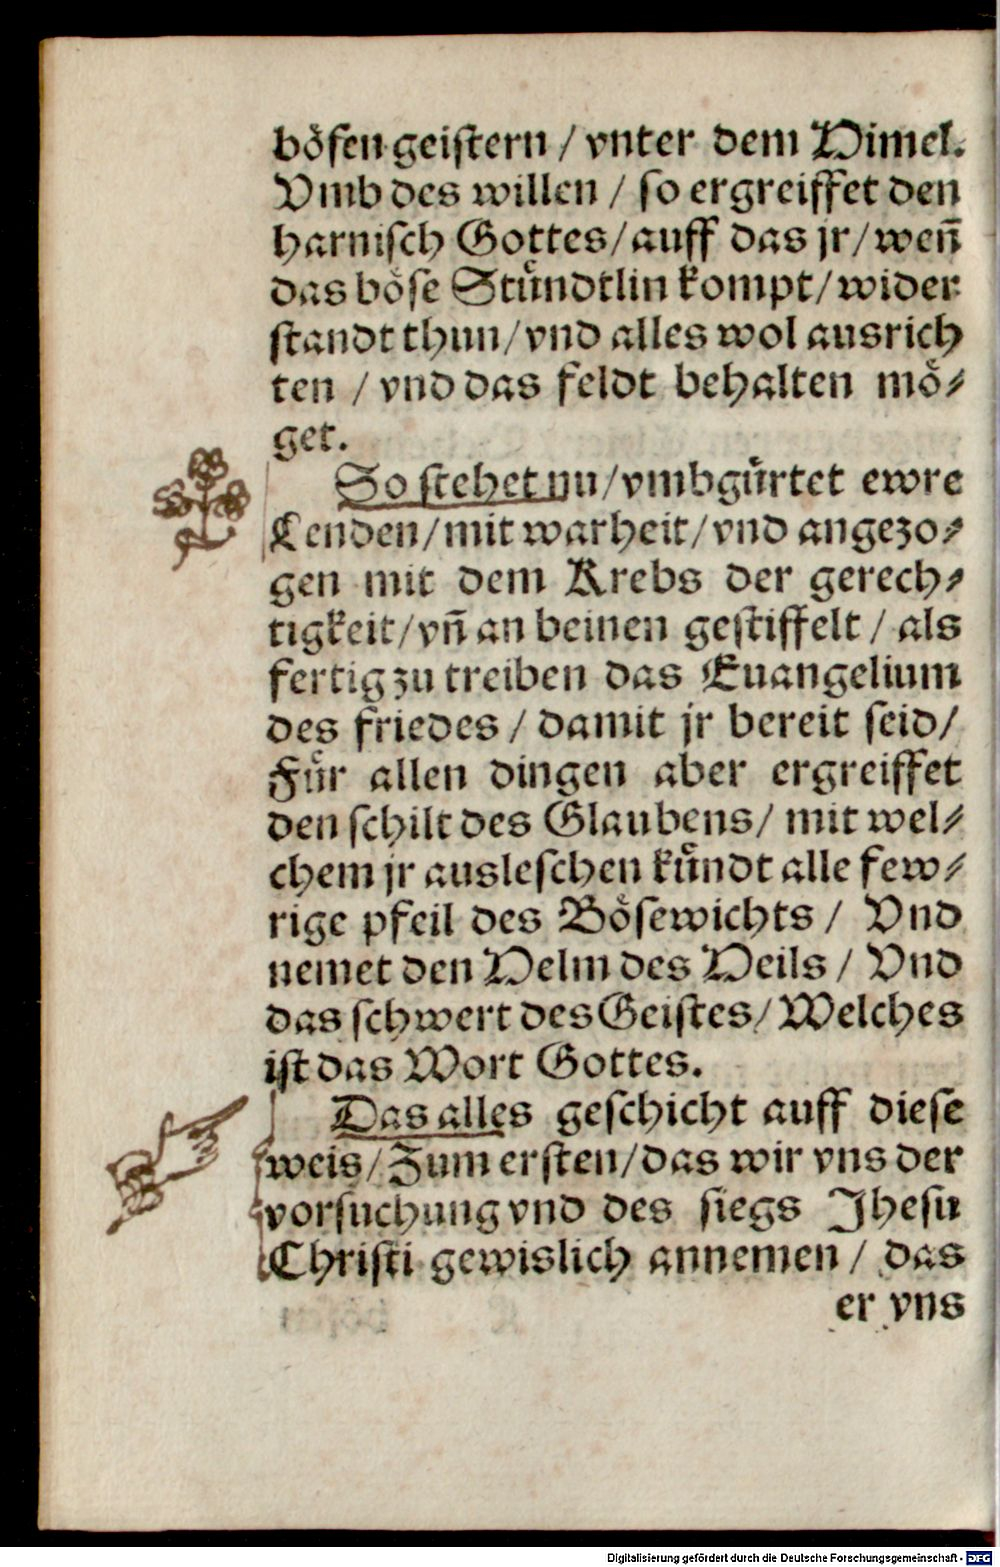 böſen geiſtern / vnter dem Himel.
Vmb des willen / ſo ergreiffet den
harniſch Gottes/auff das jr/weñ
das böſe Stündtlin kompt/wider
ſtandt thun/vnd alles wol ausrich
ten / vnd das feldt behalten mö⸗
get.
So ſtehet nu/vmbgürtet ewre
Lenden/mit warheit/vnd angezo⸗
gen mit dem Krebs der gerech⸗
tigkeit/vñ an beinen geſtiffelt / als
fertig zu treiben das Euangelium
des friedes / damit jr bereit ſeid/
Für allen dingen aber ergreiffet
den ſchilt des Glaubens/ mit wel⸗
chem jr ausleſchen kündt alle few⸗
rige pfeil des Böſewichts / Vnd
nemet den Helm des Heils / Vnd
das ſchwert des Geiſtes/Welches
iſt das Wort Gottes.
Das alles geſchicht auff dieſe
weis/Zum erſten/das wir vns der
vorſuchung vnd des ſiegs Jheſu
Chriſti gewislich annemen / das
er vns
Digitalisierung gefördert durch die Deutsche Forschungsgemeinschaft - DFG